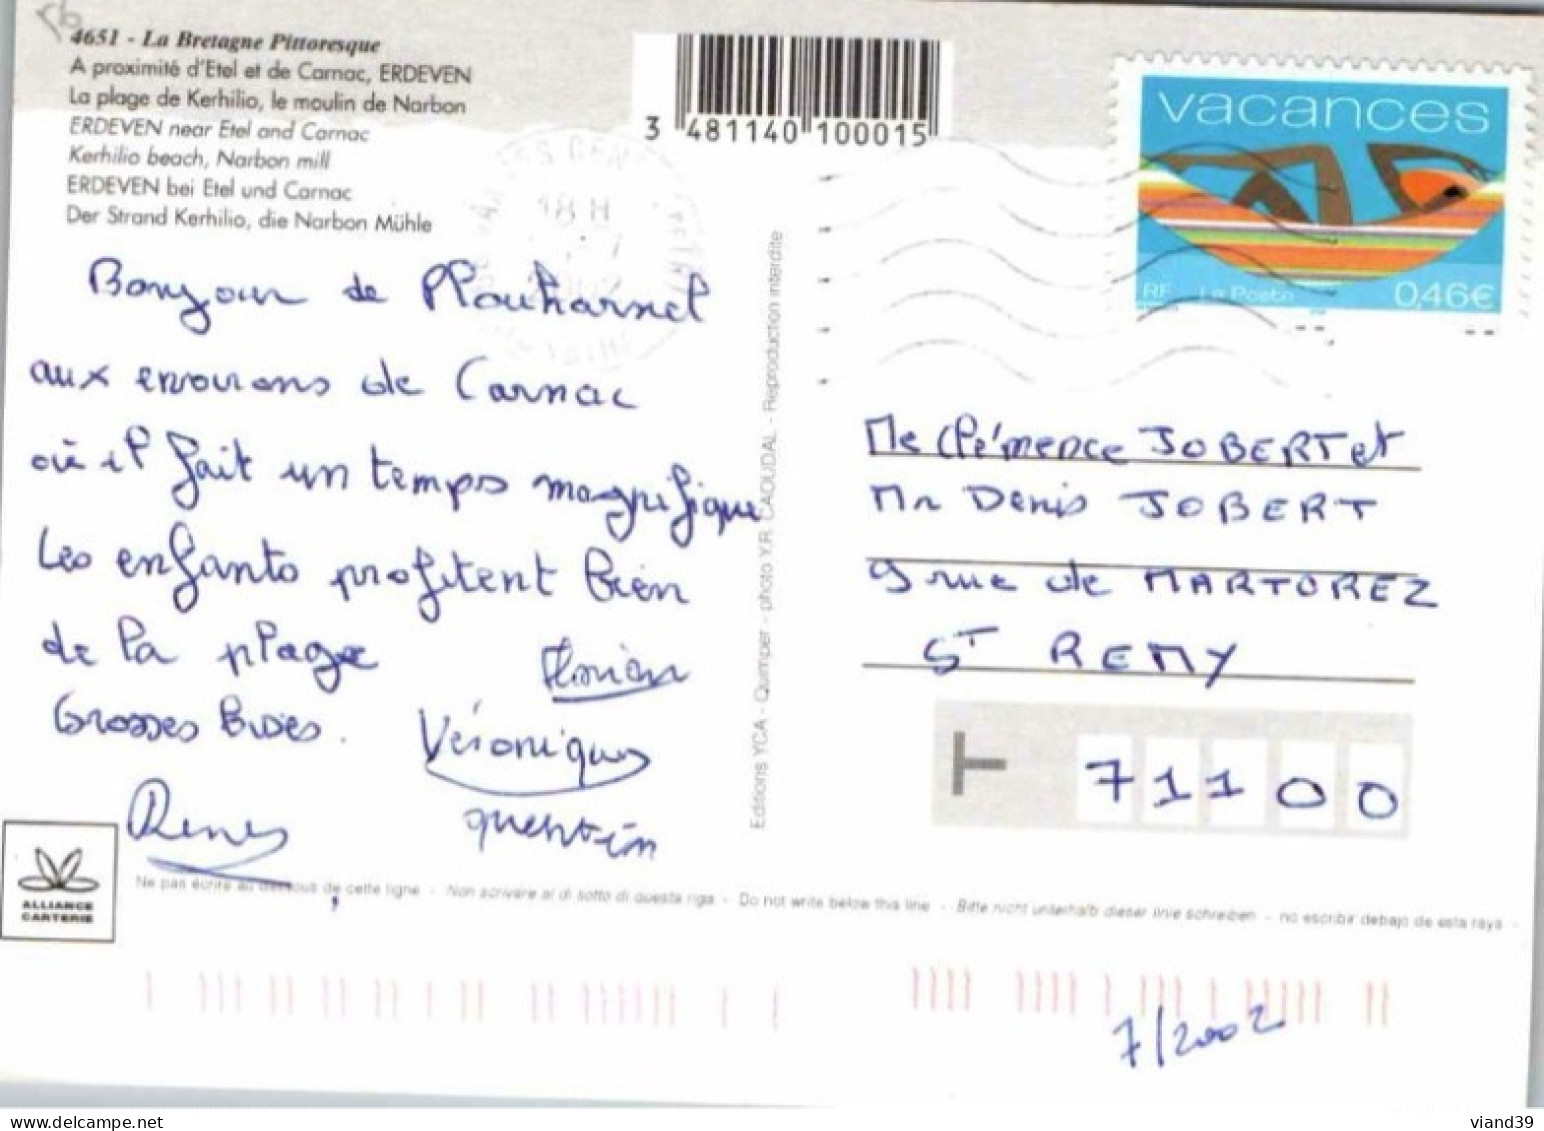 4651 - La Bretagne Pittoresque
A proximité d'Etel et de Carnac, ERDEVEN
La plage de Kerhilio, le moulin de Narbon
ERDEVEN near Etel and Carnac
Kerhilio beach, Narbon mill
ERDEVEN bei Etel und Carnac
Der Strand Kerhilio, die Narbon Mühle
3 481140 100015
vacances
RF La Poste 0,46€
18 H
Bonjour de Plouharnel
aux environs de Carnac
où il fait un temps magnifique
Les enfants profitent bien
de la plage
Grosses Bises.
Florian
Véronique
quentin
Editions YCA - Quimper - photo Y.R. CAOUDAL - Reproduction interdite
Me Clémence JOBERT et
Mr Denis JOBERT
9 rue de MARTOREZ
ST REMY
71100
ALLIANCE
CARTERIE
Ne pas écrire au dessous de cette ligne - Non scrivere al di sotto di questa riga - Do not write below this line - Bitte nicht unterhalb dieser linie schreiben - no escribir debajo de esta raya -
7/2002
delcampe.net
viand39